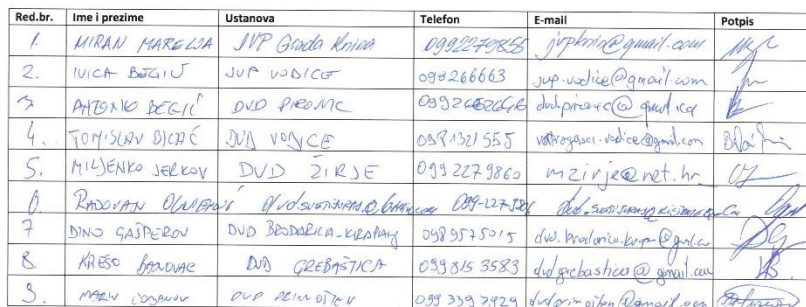 Red.br. Ime i prezime Ustanova Telefon E-mail Potpis
1. MIRAN MARELJA JVP Grada Knina 0992279856 jvpknin@gmail.com
2. IVICA BEGIĆ JVP VODICE 099266663 jvp.vodice@gmail.com
3. ANTONIO BEGIĆ DVD PIROVAC
4. TOMISLAV BICAĆ DVD VODICE 0981321555 vatrogasci.vodice@gmail.com
5. MILJENKO JERKOV DVD ŽIRJE 0992279860 mzirje@net.hr
6. RADOVAN
7 DINO GAŠPEROV DVD BRODARICA-KRAPANJ 0989575015
8. KREŠO BANOVAC DVD GREBAŠTICA 099 815 3583 dvdgrebastica@gmail.com
9. MARIN DVD PRIMOŠTEN 099 339 7929 dvdprimosten@gmail.com